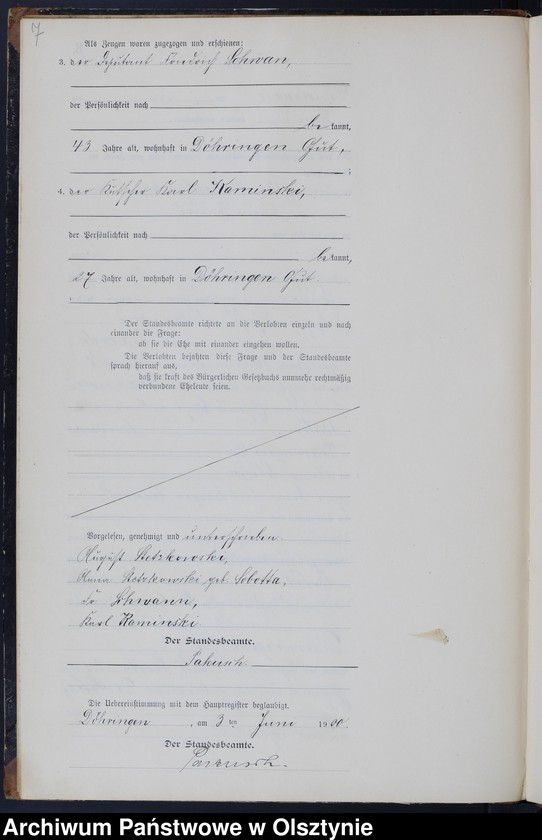 7
Als Zeugen waren zugezogen und erschienen:
3. der Deputant Schwan,
der Persönlichkeit nach
be kannt,
43 Jahre alt, wohnhaft in Döhringen Gut,
;
4. der Kutscher Karl Kaminski,
der Persönlichkeit nach
be kannt,
27 Jahre alt, wohnhaft in Döhringen Gut
Der Standesbeamte richtete an die Verlobten einzeln und nach
einander die Frage:
ob sie die Ehe mit einander eingehen wollen.
Die Verlobten bejahten diese Frage und der Standesbeamte
sprach hierauf aus,
daß sie kraft des Bürgerlichen Gesetzbuchs nunmehr rechtmäßig
verbundene Eheleute seien.
Vorgelesen, genehmigt und unterschrieben
August Stetzkowski,
Stetzkowski geb. Sobotta,
Fr Schwann,
Karl Kaminski
Der Standesbeamte.
Die Uebereinstimmung mit dem Hauptregister beglaubigt.
Döhringen, am 3 ten Juni 1900.
Der Standesbeamte.
Archiwum Państwowe w Olsztynie